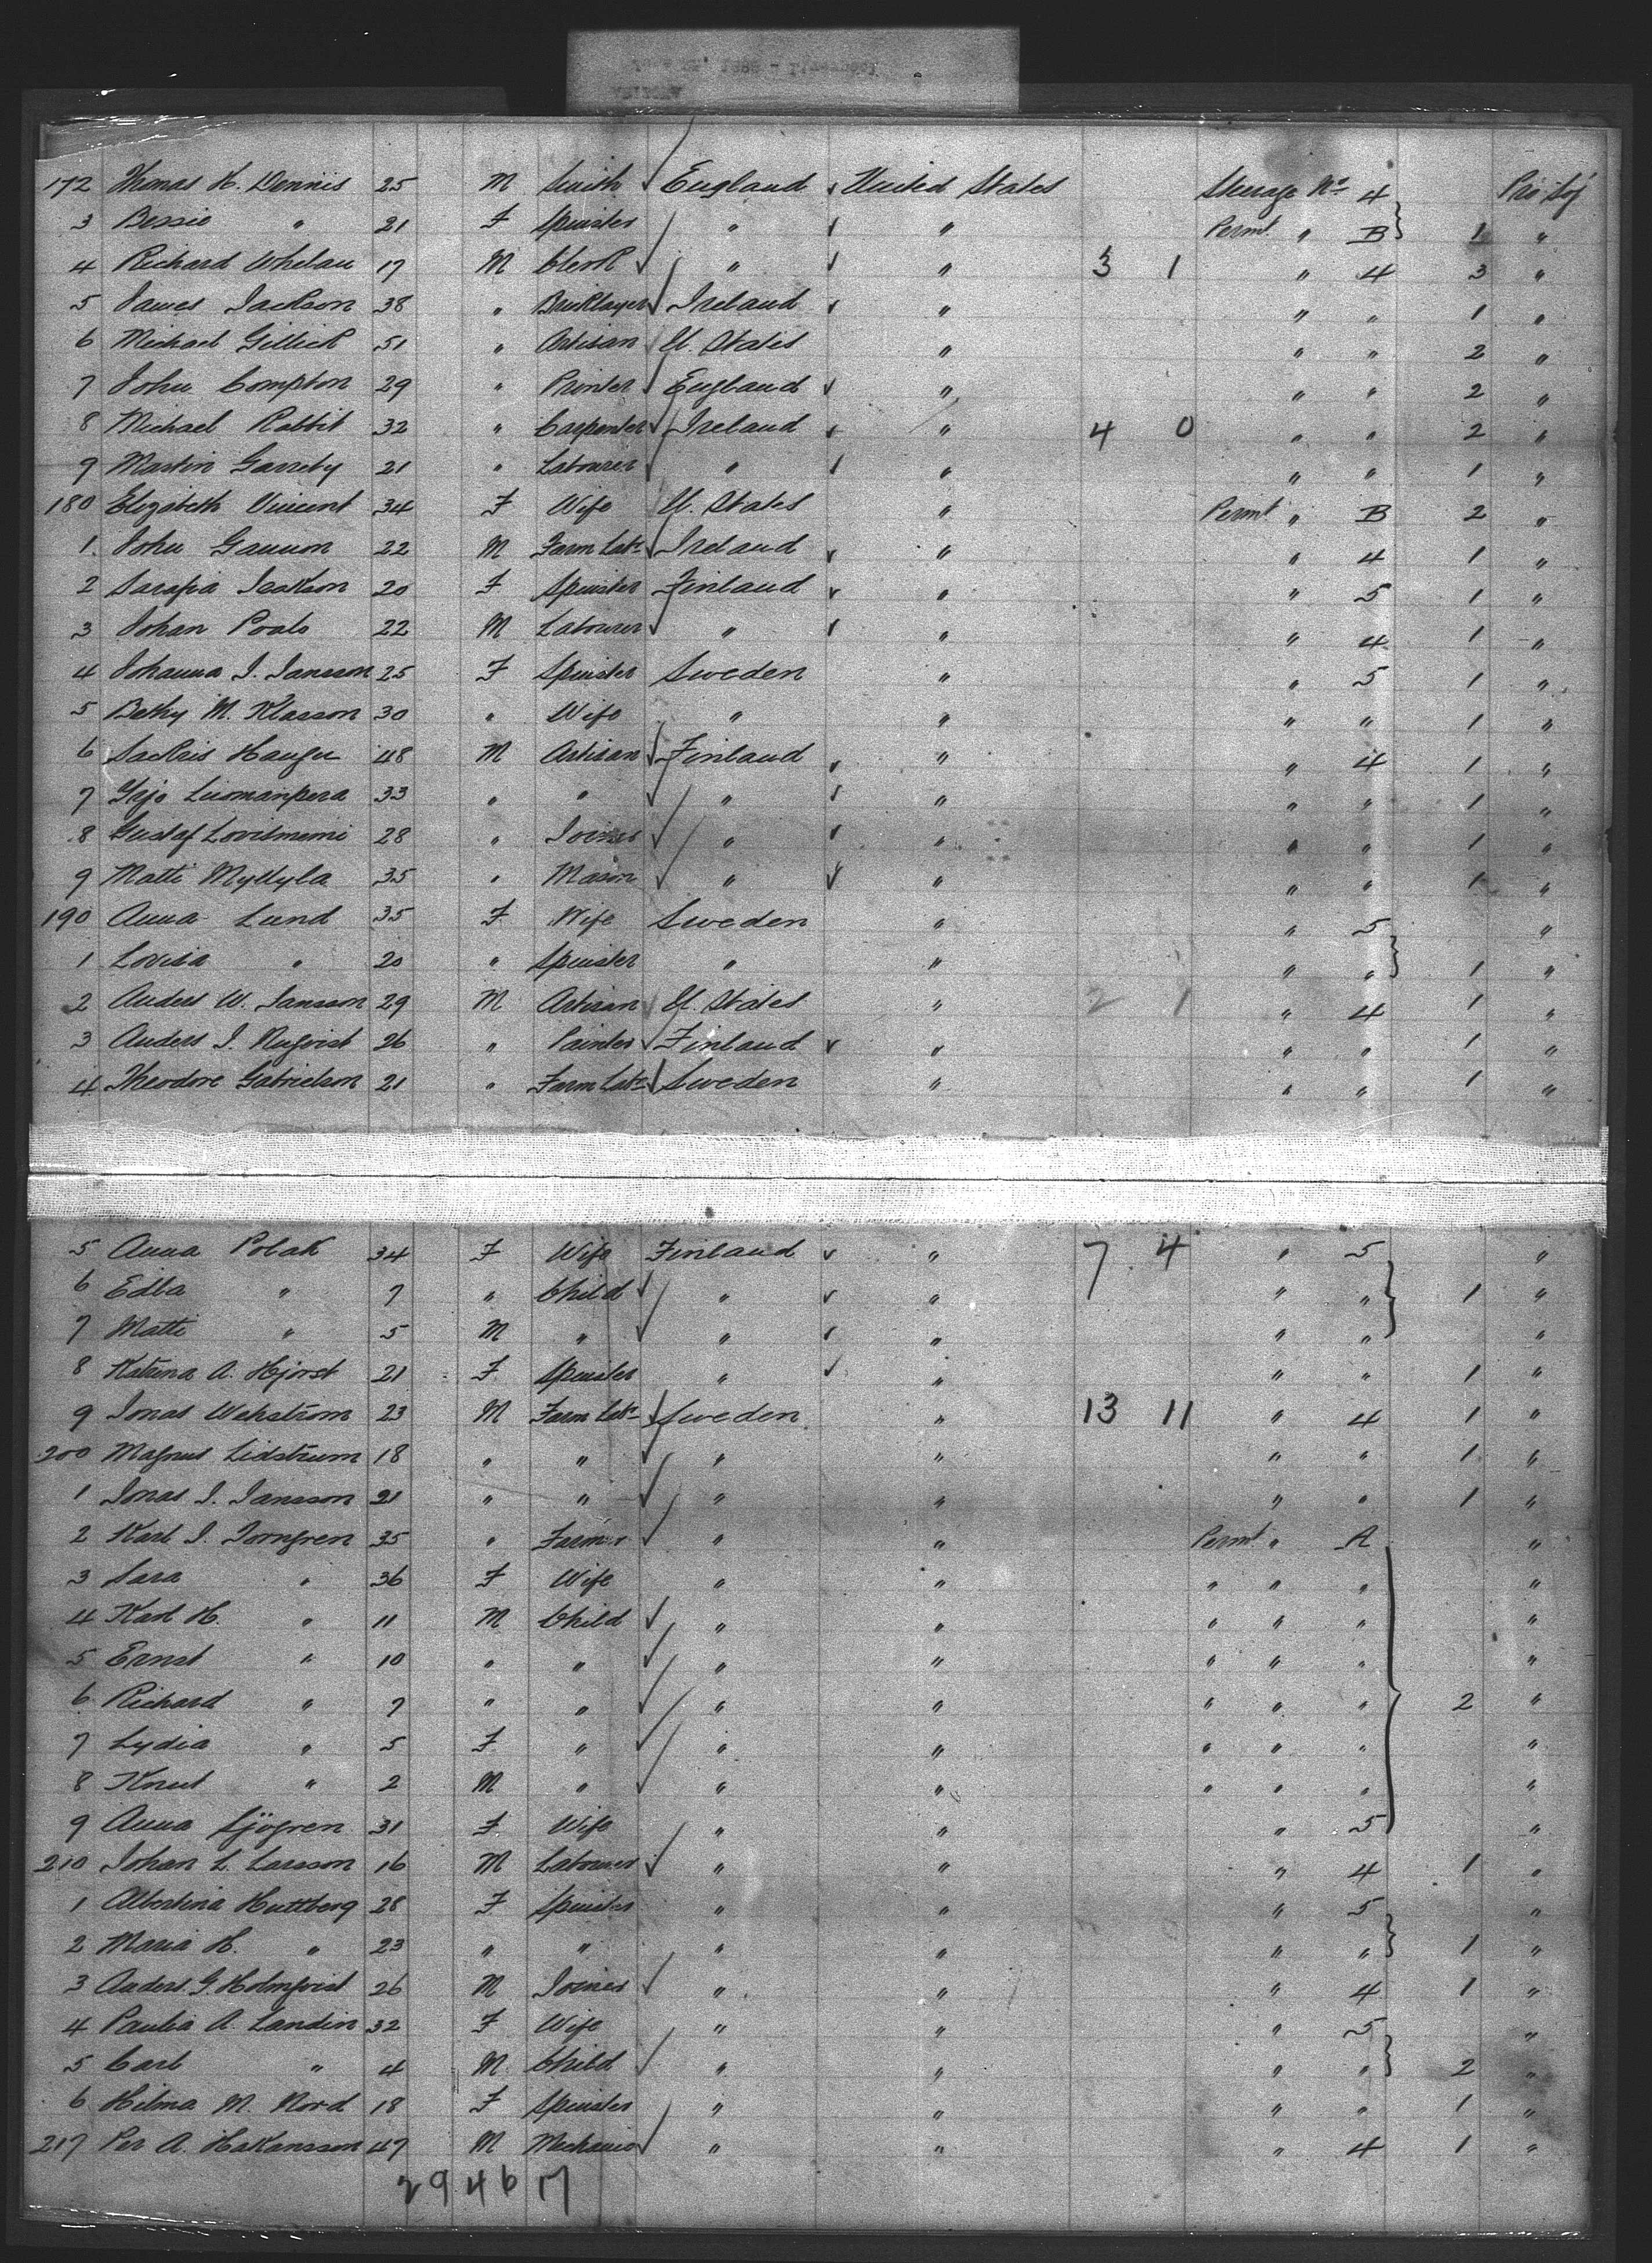 172 Thomas H. Dennis 25 M Smith England United States Steerage No 4 Pro Soj
3 Bessie " 21 F Spinster " " Permt. " B 1 "
4 Richard Whelan 17 M Clerk " " 3 1 " 4 3 "
5 James Jackson 38 " Bricklayer Ireland " " " 1 "
6 Michael Gillick 51 " Artisan U. States " " " 2 "
7 John Compton 29 " Printer England " " " 2 "
8 Michael Rabbit 32 " Carpenter Ireland " 4 0 " " 2 "
9 Martin Garrety 21 " Labourer " " " " 1 "
180 Elizabeth Vincent 34 F Wife U. States " Permt " B 2 "
1 John Gannon 22 M Farm Labr Ireland " " 4 1 "
2 Isakson 20 F Spinster Finland " " 5 1 "
3 Johan 22 M Labourer " " " 4 1 "
4 Johanna J. Jansson 25 F Spinster Sweden " " 5 1 "
5 Bethy M. Klasson 30 " Wife " " " " 1 "
6 Sackris 48 M Artisan Finland " " 4 1 "
7 Luomanpera 33 " " " " " " 1 "
8 Gustaf 28 " Joiner " " " " 1 "
9 Matti Myllyla 35 " Mason " " " " 1 "
190 Anna Lund 35 F Wife Sweden " " 5 "
1 Lovisa " 20 " Spinster " " " " 1 "
2 Anders W. Jansson 29 M Artisan U. States " 2 1 " 4 1 "
3 Anders J. 26 " Painter Finland " " " 1 "
4 Theodore Gabrielson 21 " Farm Labr Sweden " " " 1 "
5 Anna Polak 34 F Wife Finland " 7 4 " 5 "
6 Edla " 7 " Child " " " " 1 "
7 Matti " 5 M " " " " " "
8 Katrina A. Hjorst 21 F Spinster " " " " 1 "
9 Jonas Wehstrom 23 M Farm Labr Sweden " 13 11 " 4 1 "
200 Magnus Lidstrum 18 " " " " " " 1 "
1 Jonas J. Jansson 21 " " " " " " 1 "
2 Karl J. Torngren 35 " Farmer " " Permt " A "
3 Sara " 36 F Wife " " " " " "
4 Karl H. " 11 M Child " " " " " "
5 Ernst " 10 " " " " " " " "
6 Richard " 7 " " " " " " " 2 "
7 Lydia " 5 F " " " " " " "
8 Knut " 2 M " " " " " " "
9 Anna Sjögren 31 F Wife " " " 5 "
210 Johan L. Larsson 16 M Labourer " " " 4 1 "
1 Albertina Huttberg 28 F Spinster " " " 5 "
2 Maria H. " 23 " " " " " " 1 "
3 Anders G. Holmqvist 26 M Joiner " " " 4 1 "
4 Paulia A. Landin 32 F Wife " " " 5 "
5 Carl " 4 M Child " " " " 2 "
6 Hilma M. Nord 18 F Spinster " " " " 1 "
217 Per A. Hakansson 47 M Mechanic " " " 4 1 "
29461